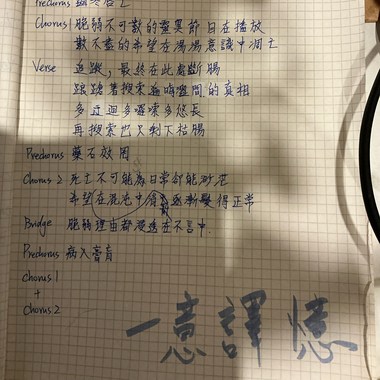 Prechorus
Chorus1 脆弱不可數的靈異節目在播放
數不盡的希望在湯湯意識中凋亡
Verse 追蹤，最終在此處斷腸
踉蹌著搜索晦暗間的真相
多迂迴多囉嗦多悠長
再搜索也只剩下枯腸
Prechorus 藥石放罔
Chorus 2 死亡不可能為日常卻能
希望在混沌中 逐漸變得正常
Bridge 脆弱理由都浸透在不言中
Prechorus 病入膏肓
Chorus 1
+
Chorus 2
一意譯憶